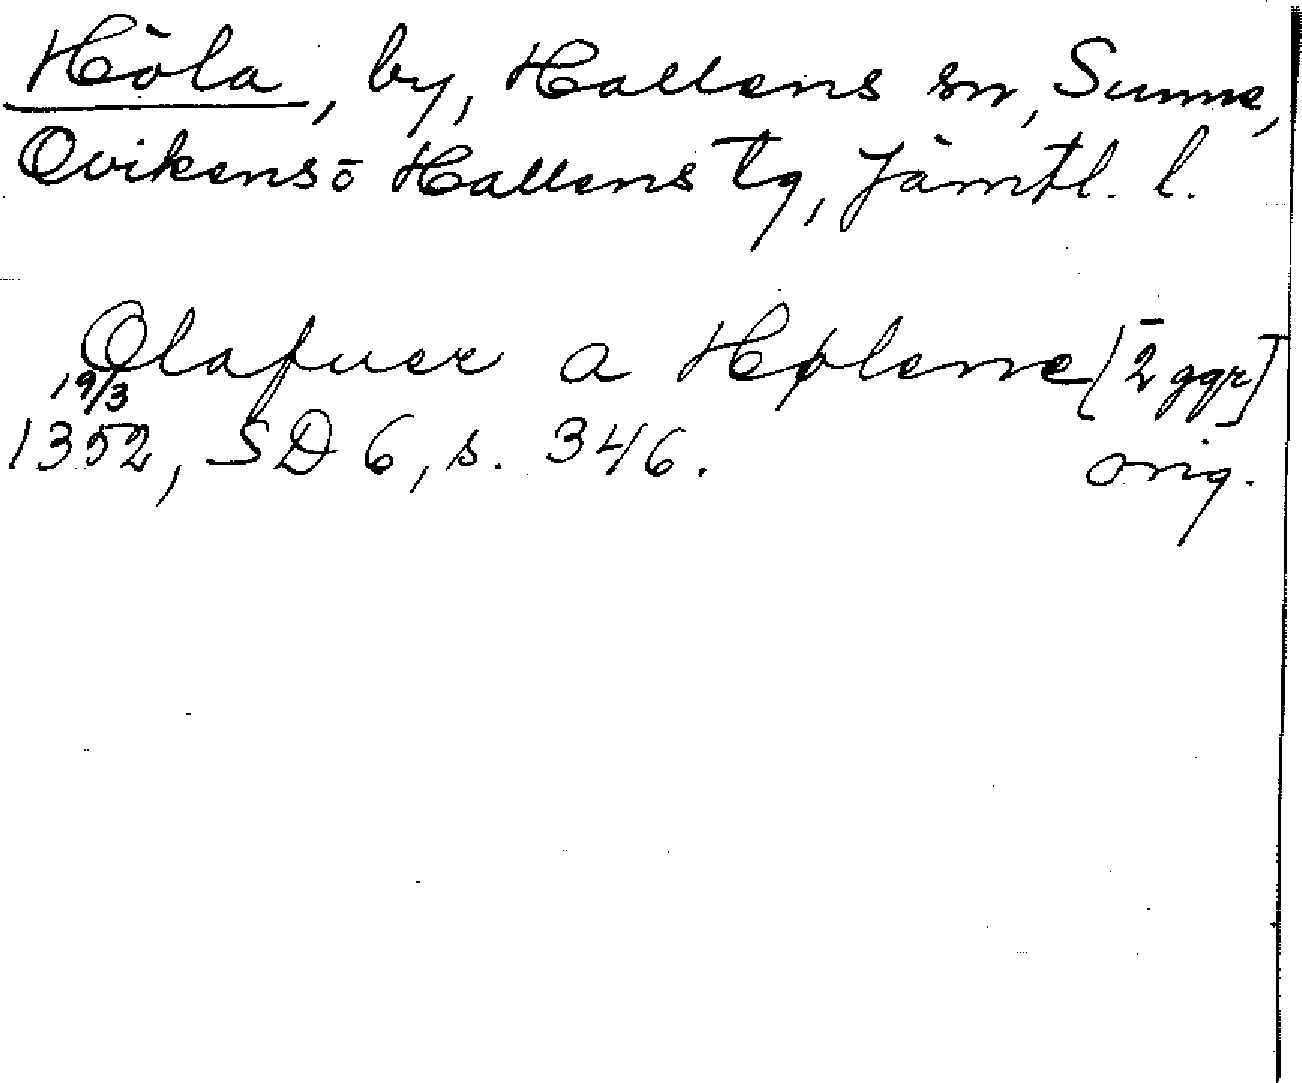 Höla, by, Hallens sn, Sunne,
Ovikens o Hallens tg, Jämtl. l.
Olafuer a Hølenne [2 ggr]
19/3
1352, SD 6, s. 346. orig.